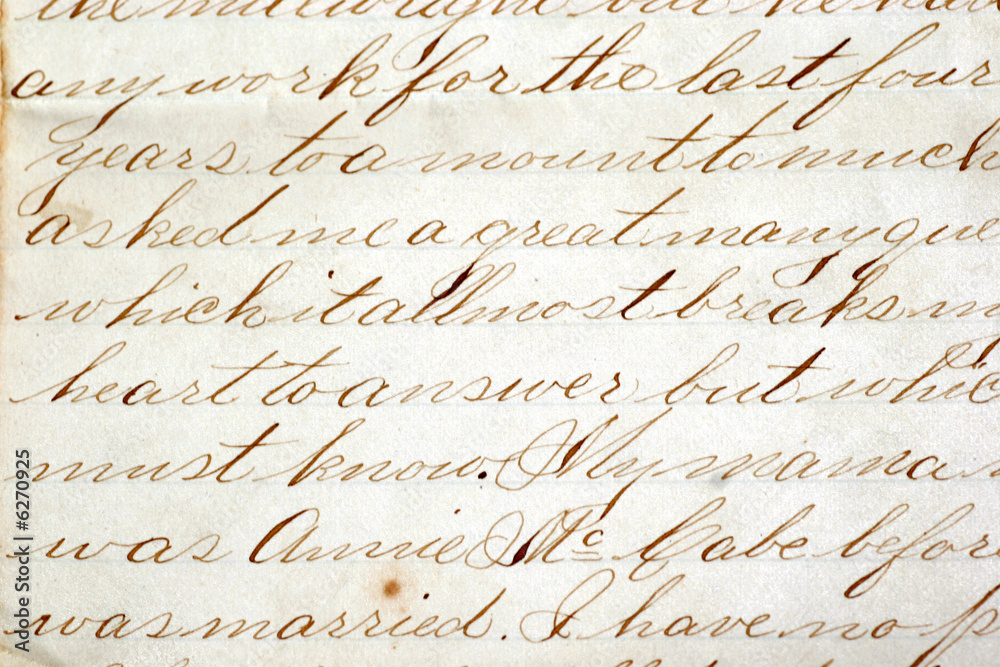 any work for the last four
years to a mount to much
asked me a great many que
which it allmost breaks m
heart to answer but whic
must know. My mama
was Annie Mc Cabe befor
was married. I have no p
Adobe Stock | #6270925